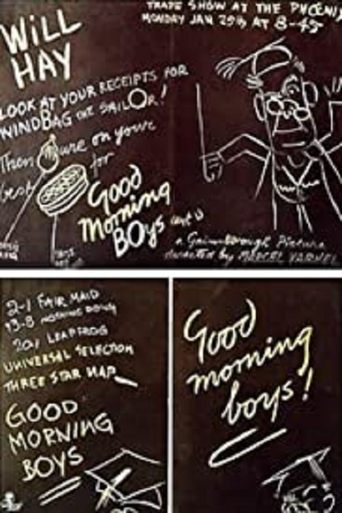 WILL
HAY
TRADE SHOW AT THE PHOENIX
MONDAY JAN 25th AT 8-45
LOOK AT YOUR RECEIPTS FOR
WINDBAG THE SAILOR!
Then on your
best for
Good
Morning
BOYS
a Gainsborough Picture
directed by MARCEL VARNEL
2-1 FAIR MAID
13-8 NOTHING DOING
20/1 LEAPFROG
UNIVERSAL SELECTION
THREE STAR MAP
GOOD
MORNING
BOYS
Good
morning
boys!